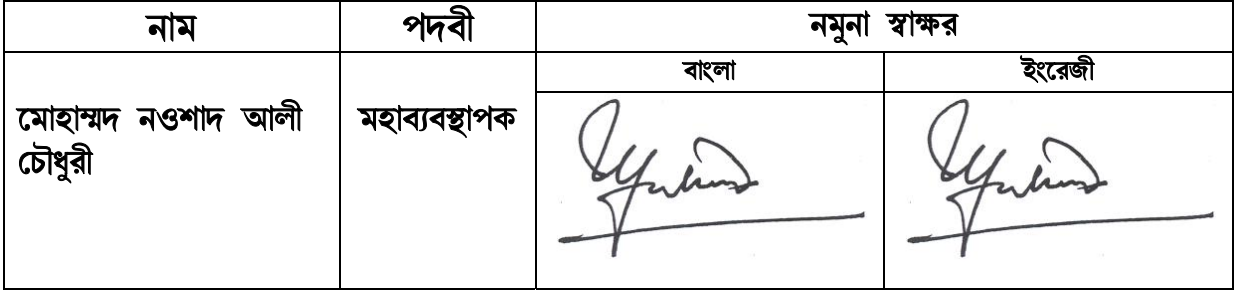 নাম পদবী নমুনা স্বাক্ষর
বাংলা ইংরেজী
মোহাম্মদ নওশাদ আলী মহাব্যবস্থাপক
চৌধুরী